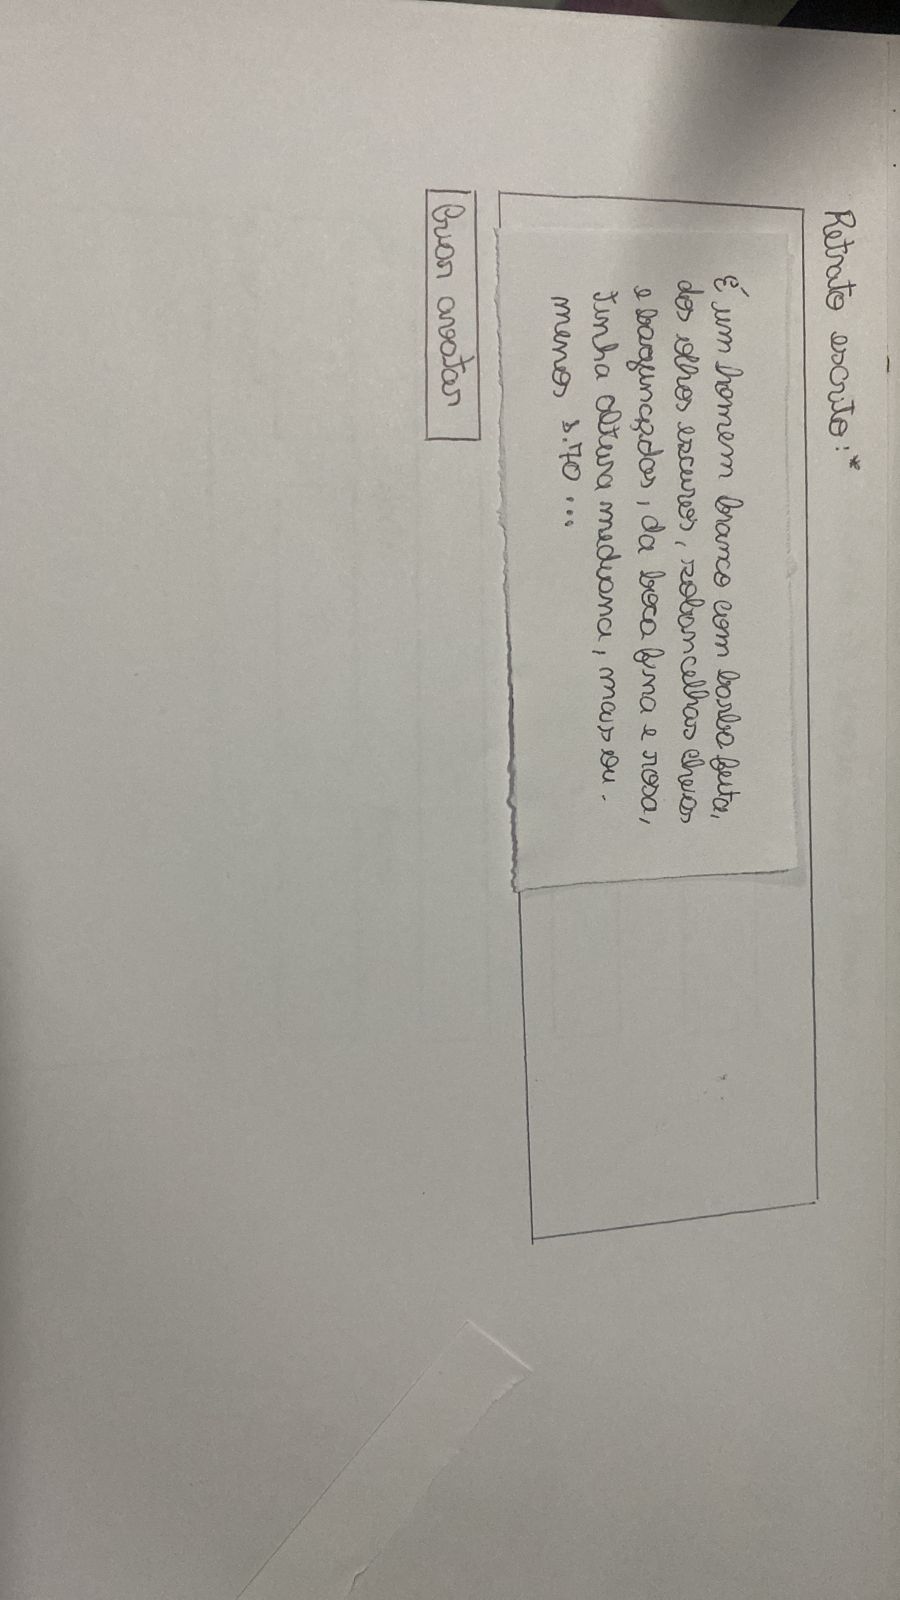 Retrato escrito:*
É um homem branco com barba feita,
dos olhos escuros, sobancelhas cheias
e bagunçadas, da boca fina e rosa,
tinha altura mediana, mais ou.
menos 1.70 ...
Criar avatar